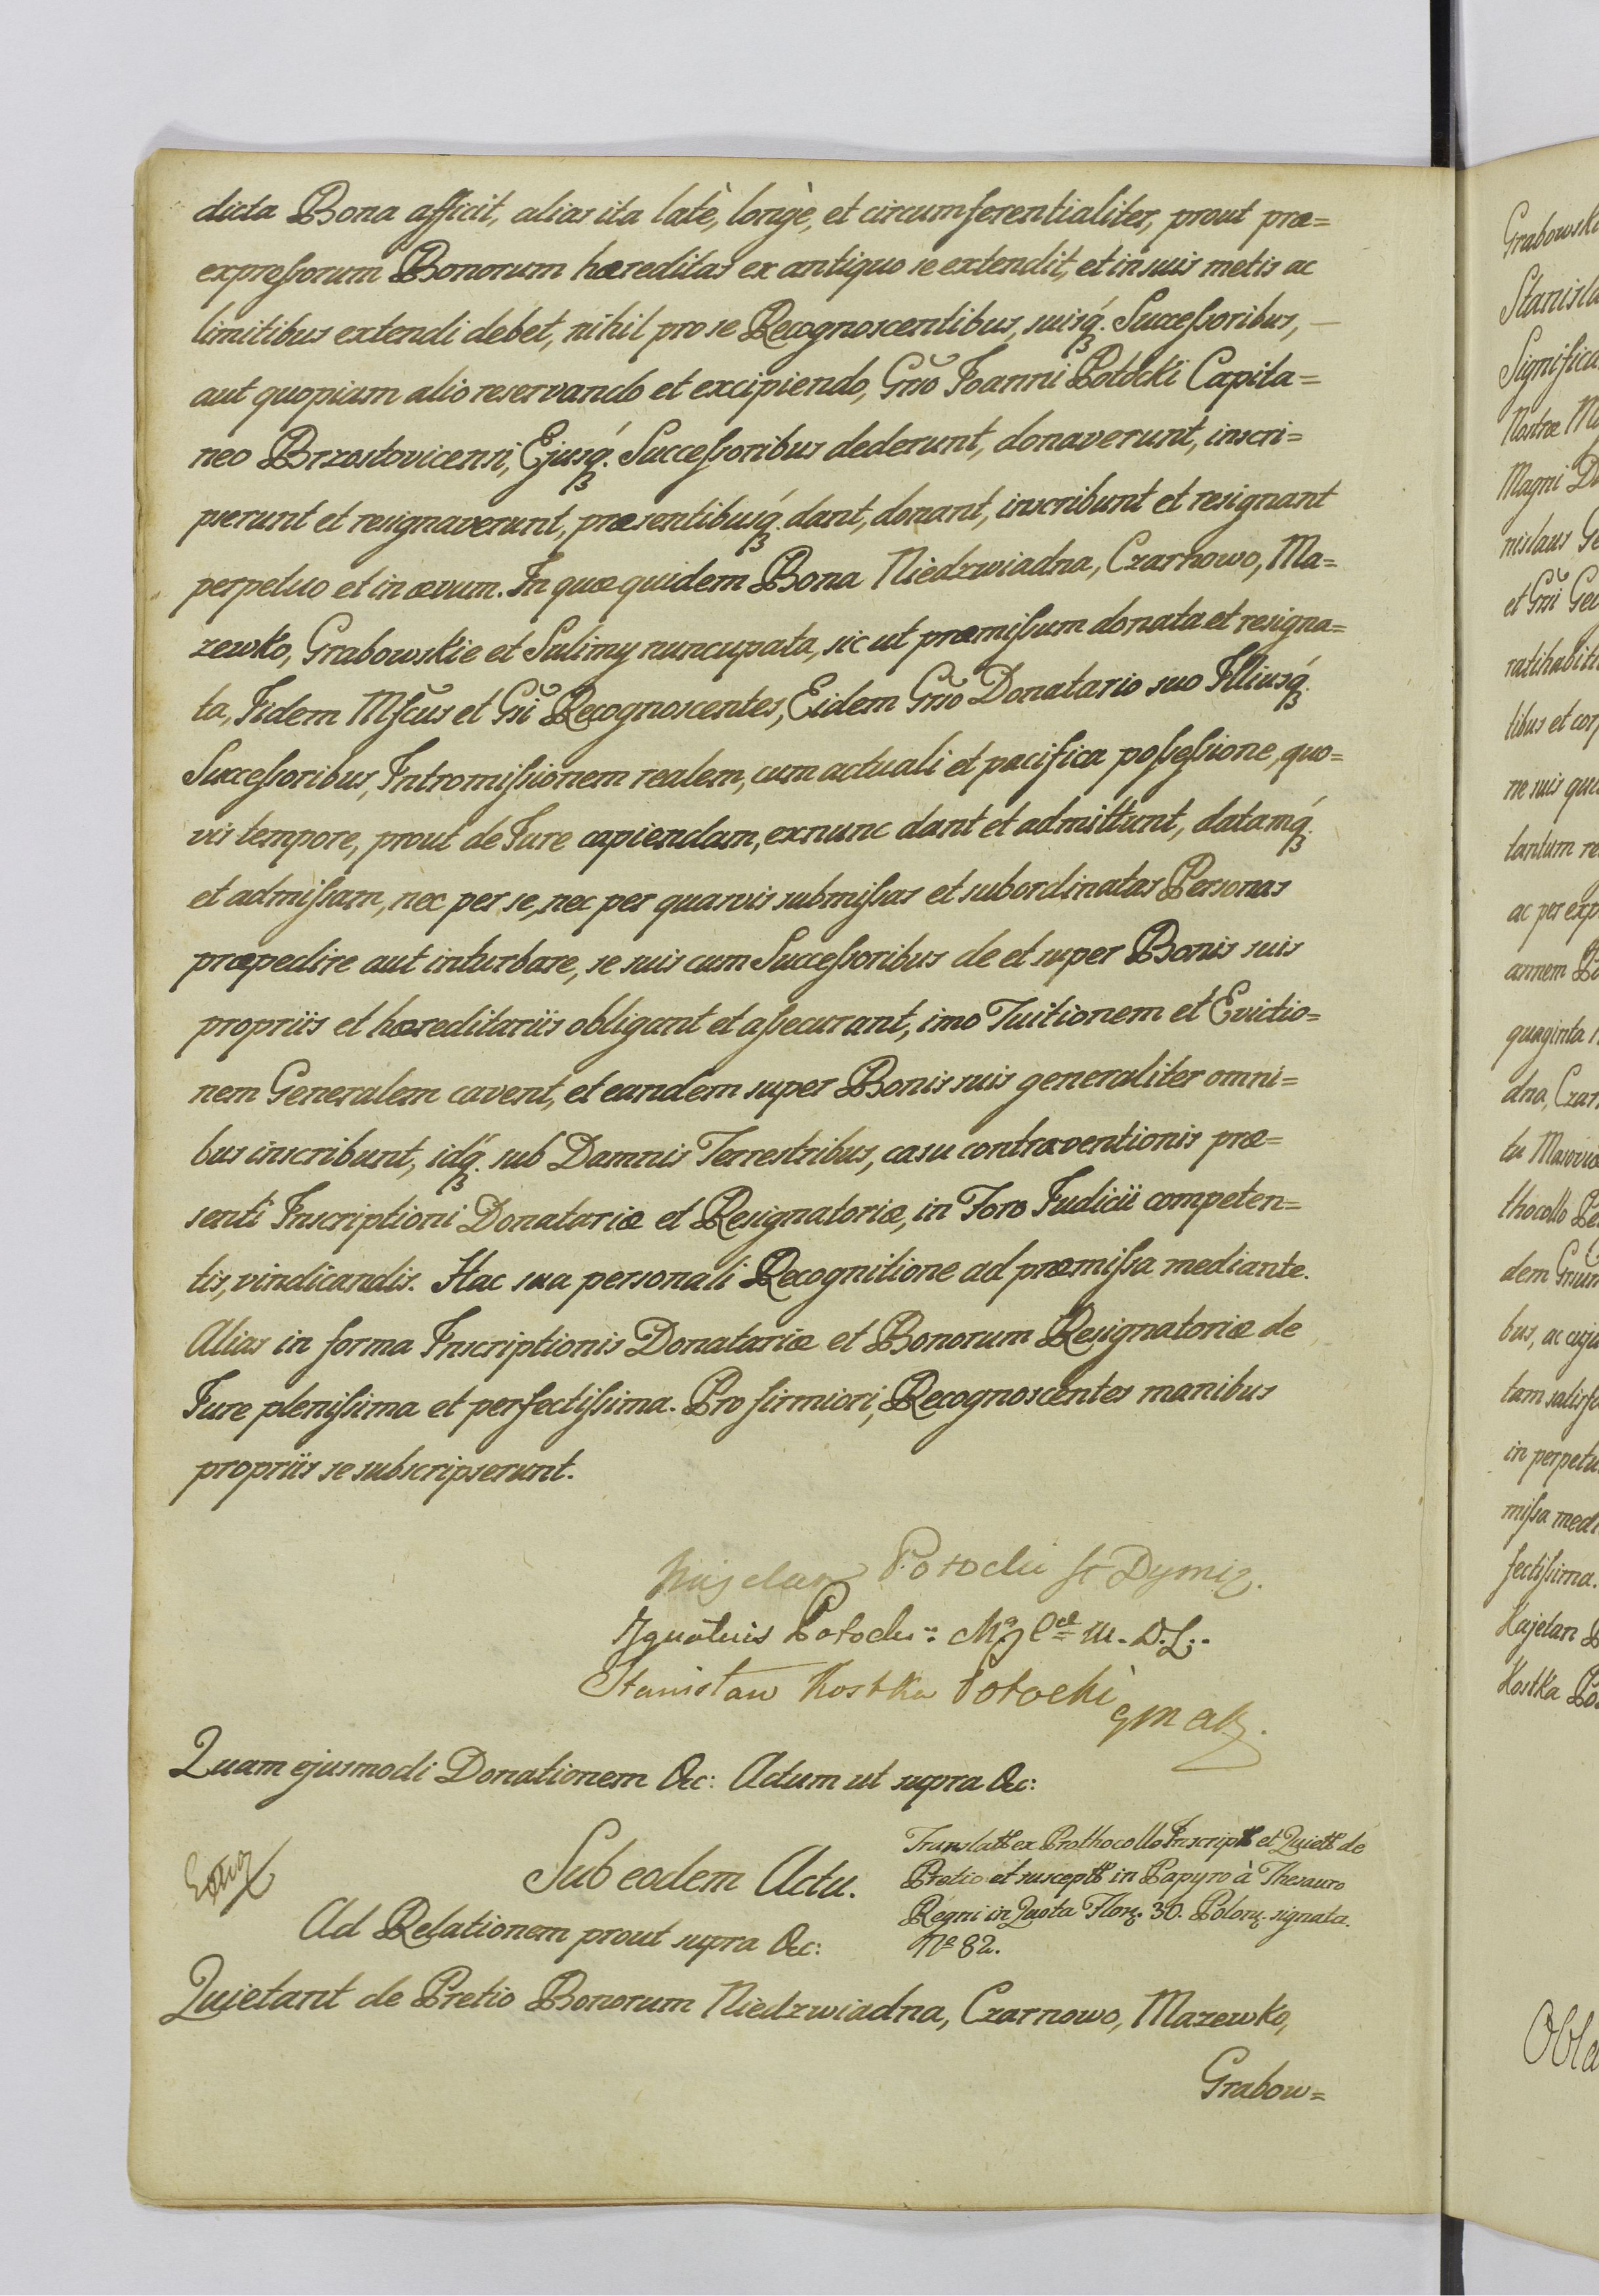 dicta Bona afficit, alias ita latè, longè, et circumferentialiter, prout præ=
expreſsorum Bonorum hæreditas ex antiquo se extendit, et in suis metis ac
limitibus extendi debet, nihil pro se Recognoscentibus, suisq́ꝫ. Succeſsoribus, —
aut quopiam alio reservando et excipiendo, Gn̄so Joanni Potocki Capita=
neo Brzostovicensi, Ejusq́ꝫ. Succeſsoribus dederunt, donaverunt, inscri=
pserunt et resignaverunt, præsentibusq́ꝫ. dant, donant, inscribunt et resignant
perpetuo et in ævum. In quæquidem Bona Niedzwiadna, Czarnowo, Ma=
zewko, Grabowskie et Sulimy nuncupata, sic ut præmiſsum donata et resigna=
ta, Iidem Mſcus et Gsi Recognoscentes, Eidem Gso Donatario suo Illiusq́ꝫ.
Succeſsoribus, Intromiſsionem realem, cum actuali et pacifica poſseſsione, quo=
vis tempore, prout de Jure capiendam, exnunc dant et admittunt, datamq́ꝫ.
et admiſsam, nec per se, nec per quasvis submiſsas et subordinatas Personas
præpedire aut inturbare, se suis cum Succeſsoribus de et super Bonis suis
propriis et hæreditariis obligant et aſsecurant, imo Tuitionem et Evictio=
nem Generalem cavent, et eandem super Bonis suis generaliter omni=
bus inscribunt, idq́ꝫ. sub Damnis Terrestribus, casu contraventionis præ=
senti Inscriptioni Donatariæ et Resignatoriæ, in Foro Judicii competen=
tis, vindicandis. Hac sua personali Recognitione ad præmiſsa mediante.
Alias in forma Inscriptionis Donatariæ et Bonorum Resignatoriæ de
Jure pleniſsima et perfectiſsima. Pro firmiori, Recognoscentes manibus
propriis se subscripserunt.
Kajetan Potocki St Dymirz.
Ignatius Potocki M. D. L.
Stanisław Kostka Potocki
Quam ejusmodi Donationem &c: Actum ut supra &c:
Sub eodem Actu.
Translatt ex Prothocollo Inscriptt et Quiett de
Pretio et susceptt in Papyro à Thesauro
Regni in Quota Florꝫ. 30. Polonꝫ. signata.
Nº 82.
Ad Relationem prout supra &c:
Quietant de Pretio Bonorum Niedzwiadna, Czarnowo, Mazewko,
Grabow=